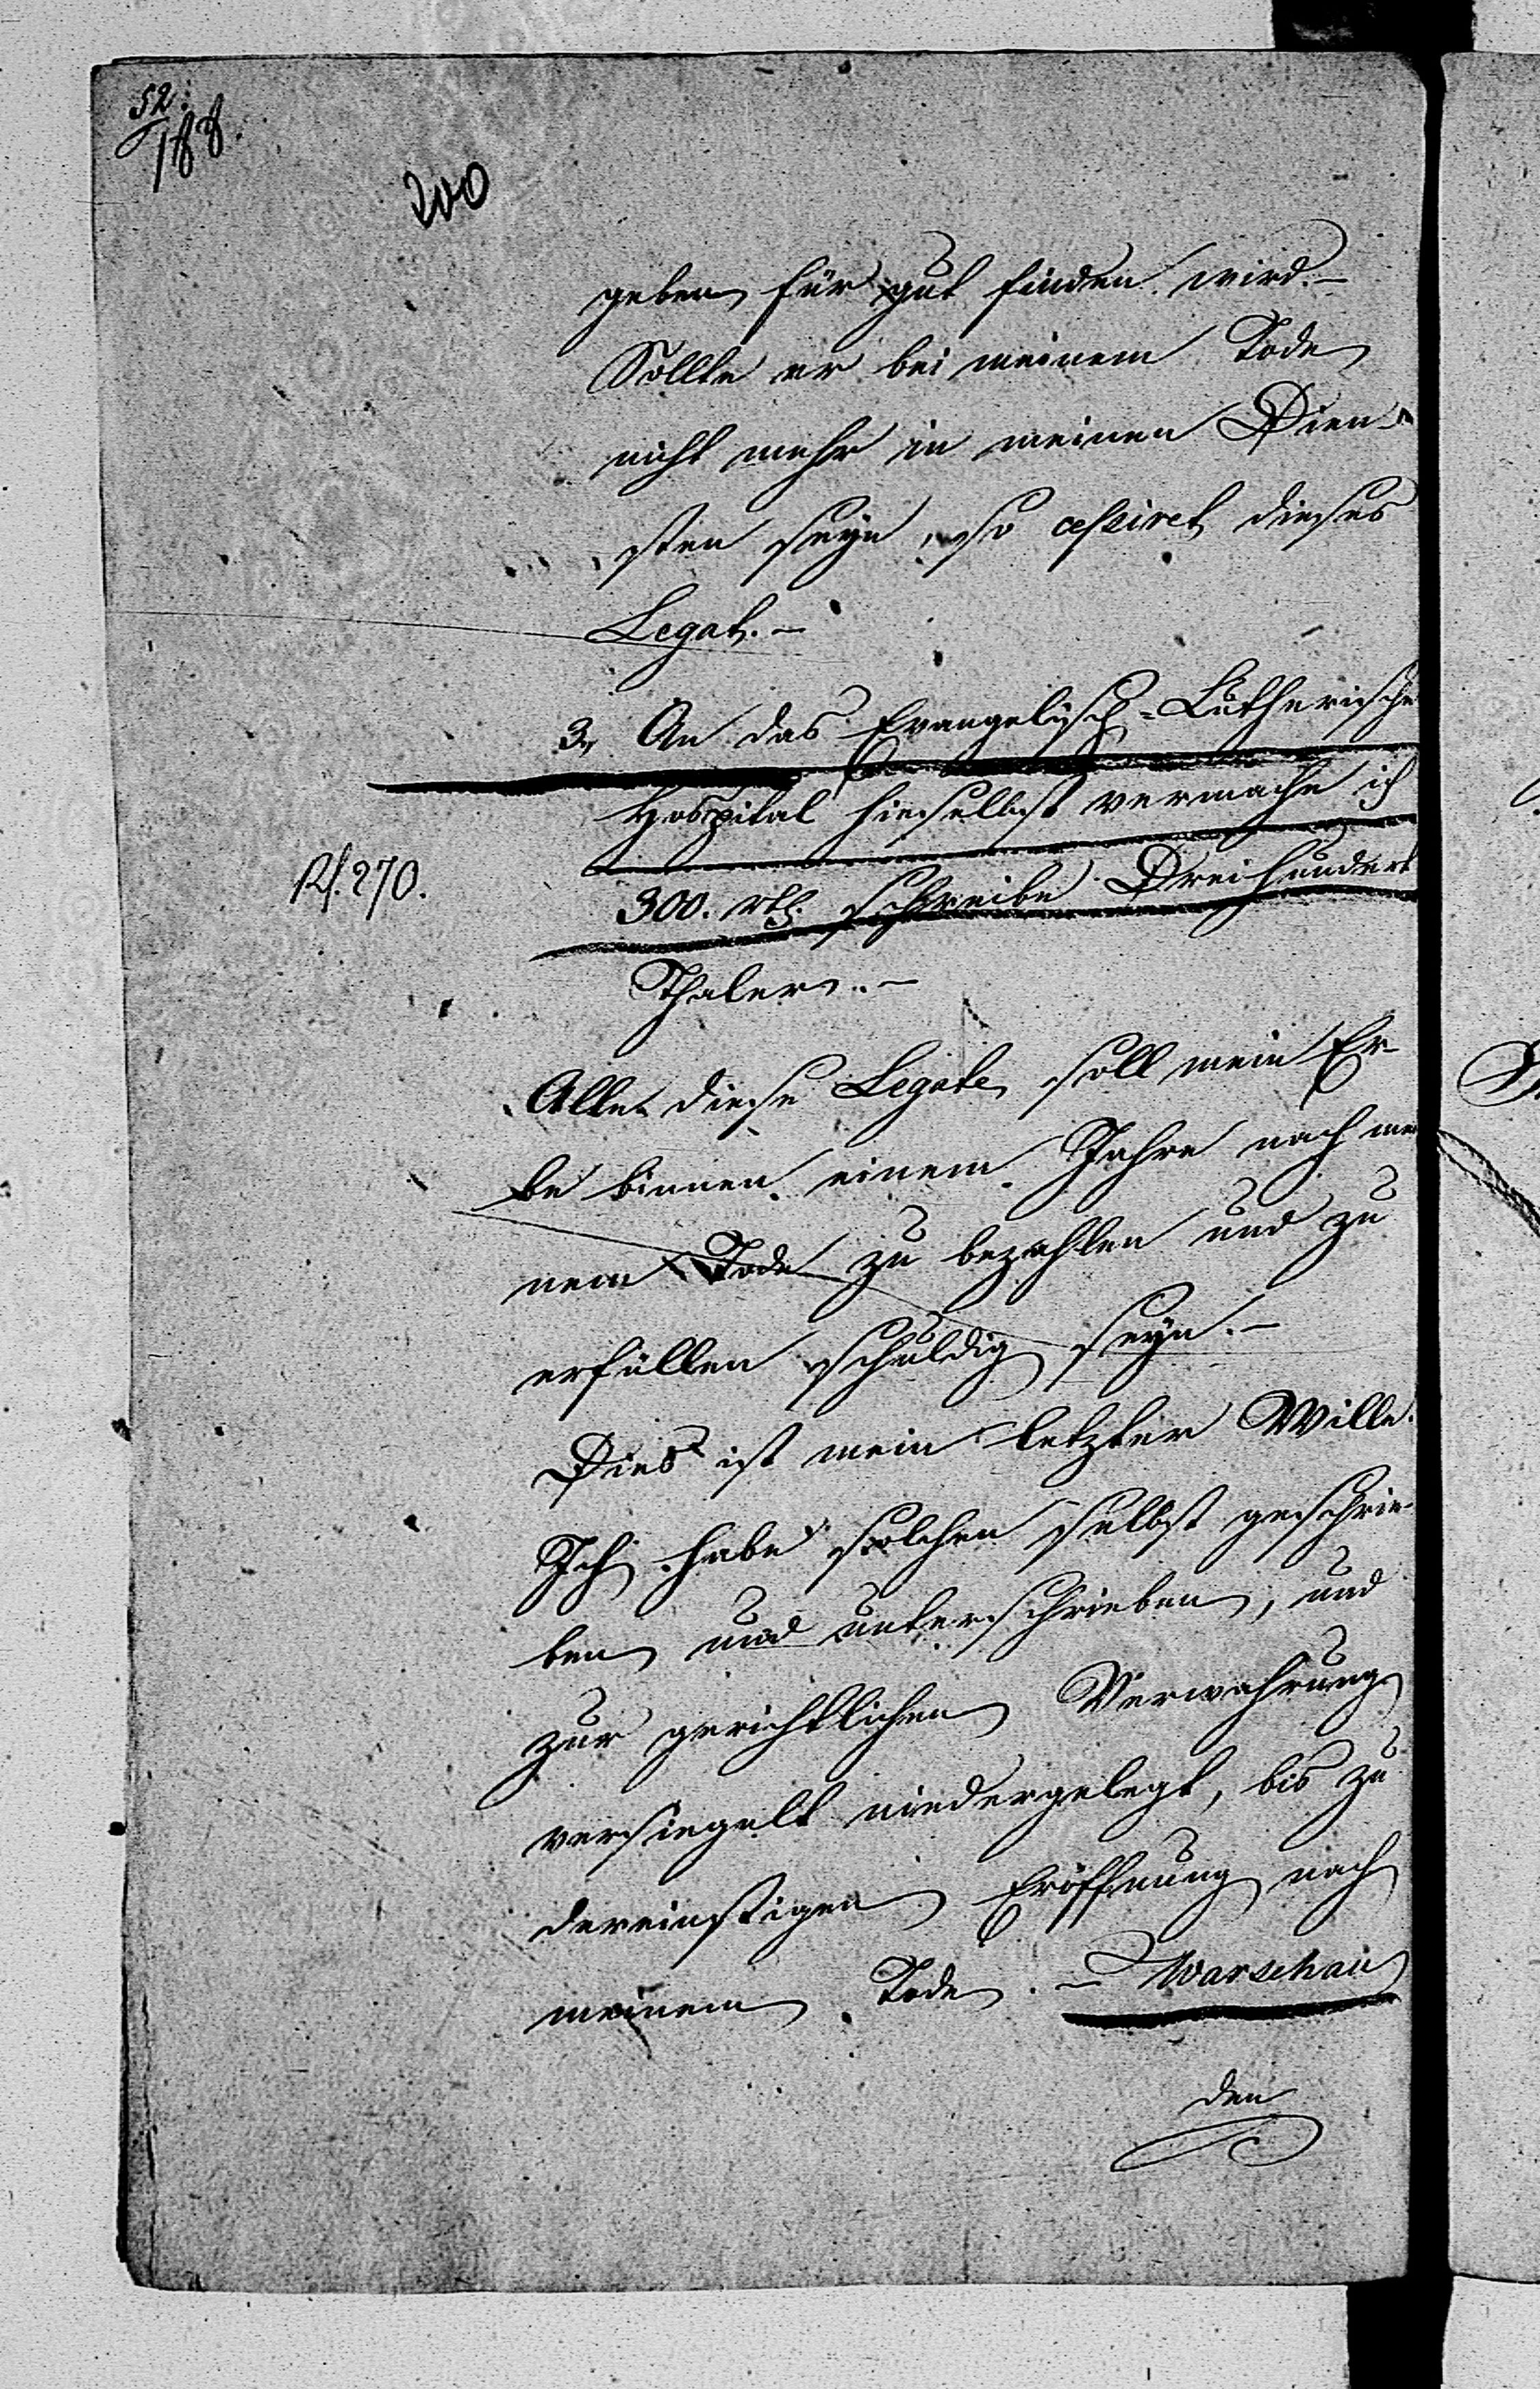 52.
188.
200
geben für gut finden wird. –
Sollte er bei meinem Tode
nicht mehr in meinen Dien-
sten seyn, so cessiret dieses
Legat. –
3, An das Evangelisch-Lutherische
Hospital hieselbst vermache ich
300. rth. schreibe Dreihundert
Rf. 270.
Thaler. –
Alle diese Legate soll mein Er-
be binnen einem Jahre nach mei
nem Tode zu bezahlen und zu
erfüllen schuldig seyn. –
Dies ist mein letzter Wille.
Ich habe solchen selbst geschrie-
ben und unterschrieben, und
zur gerichtlichen Verwahrung
versiegelt niedergelegt, bis zu
dereinstigen Eröffnung nach
meinem Tode. – Warschau
den